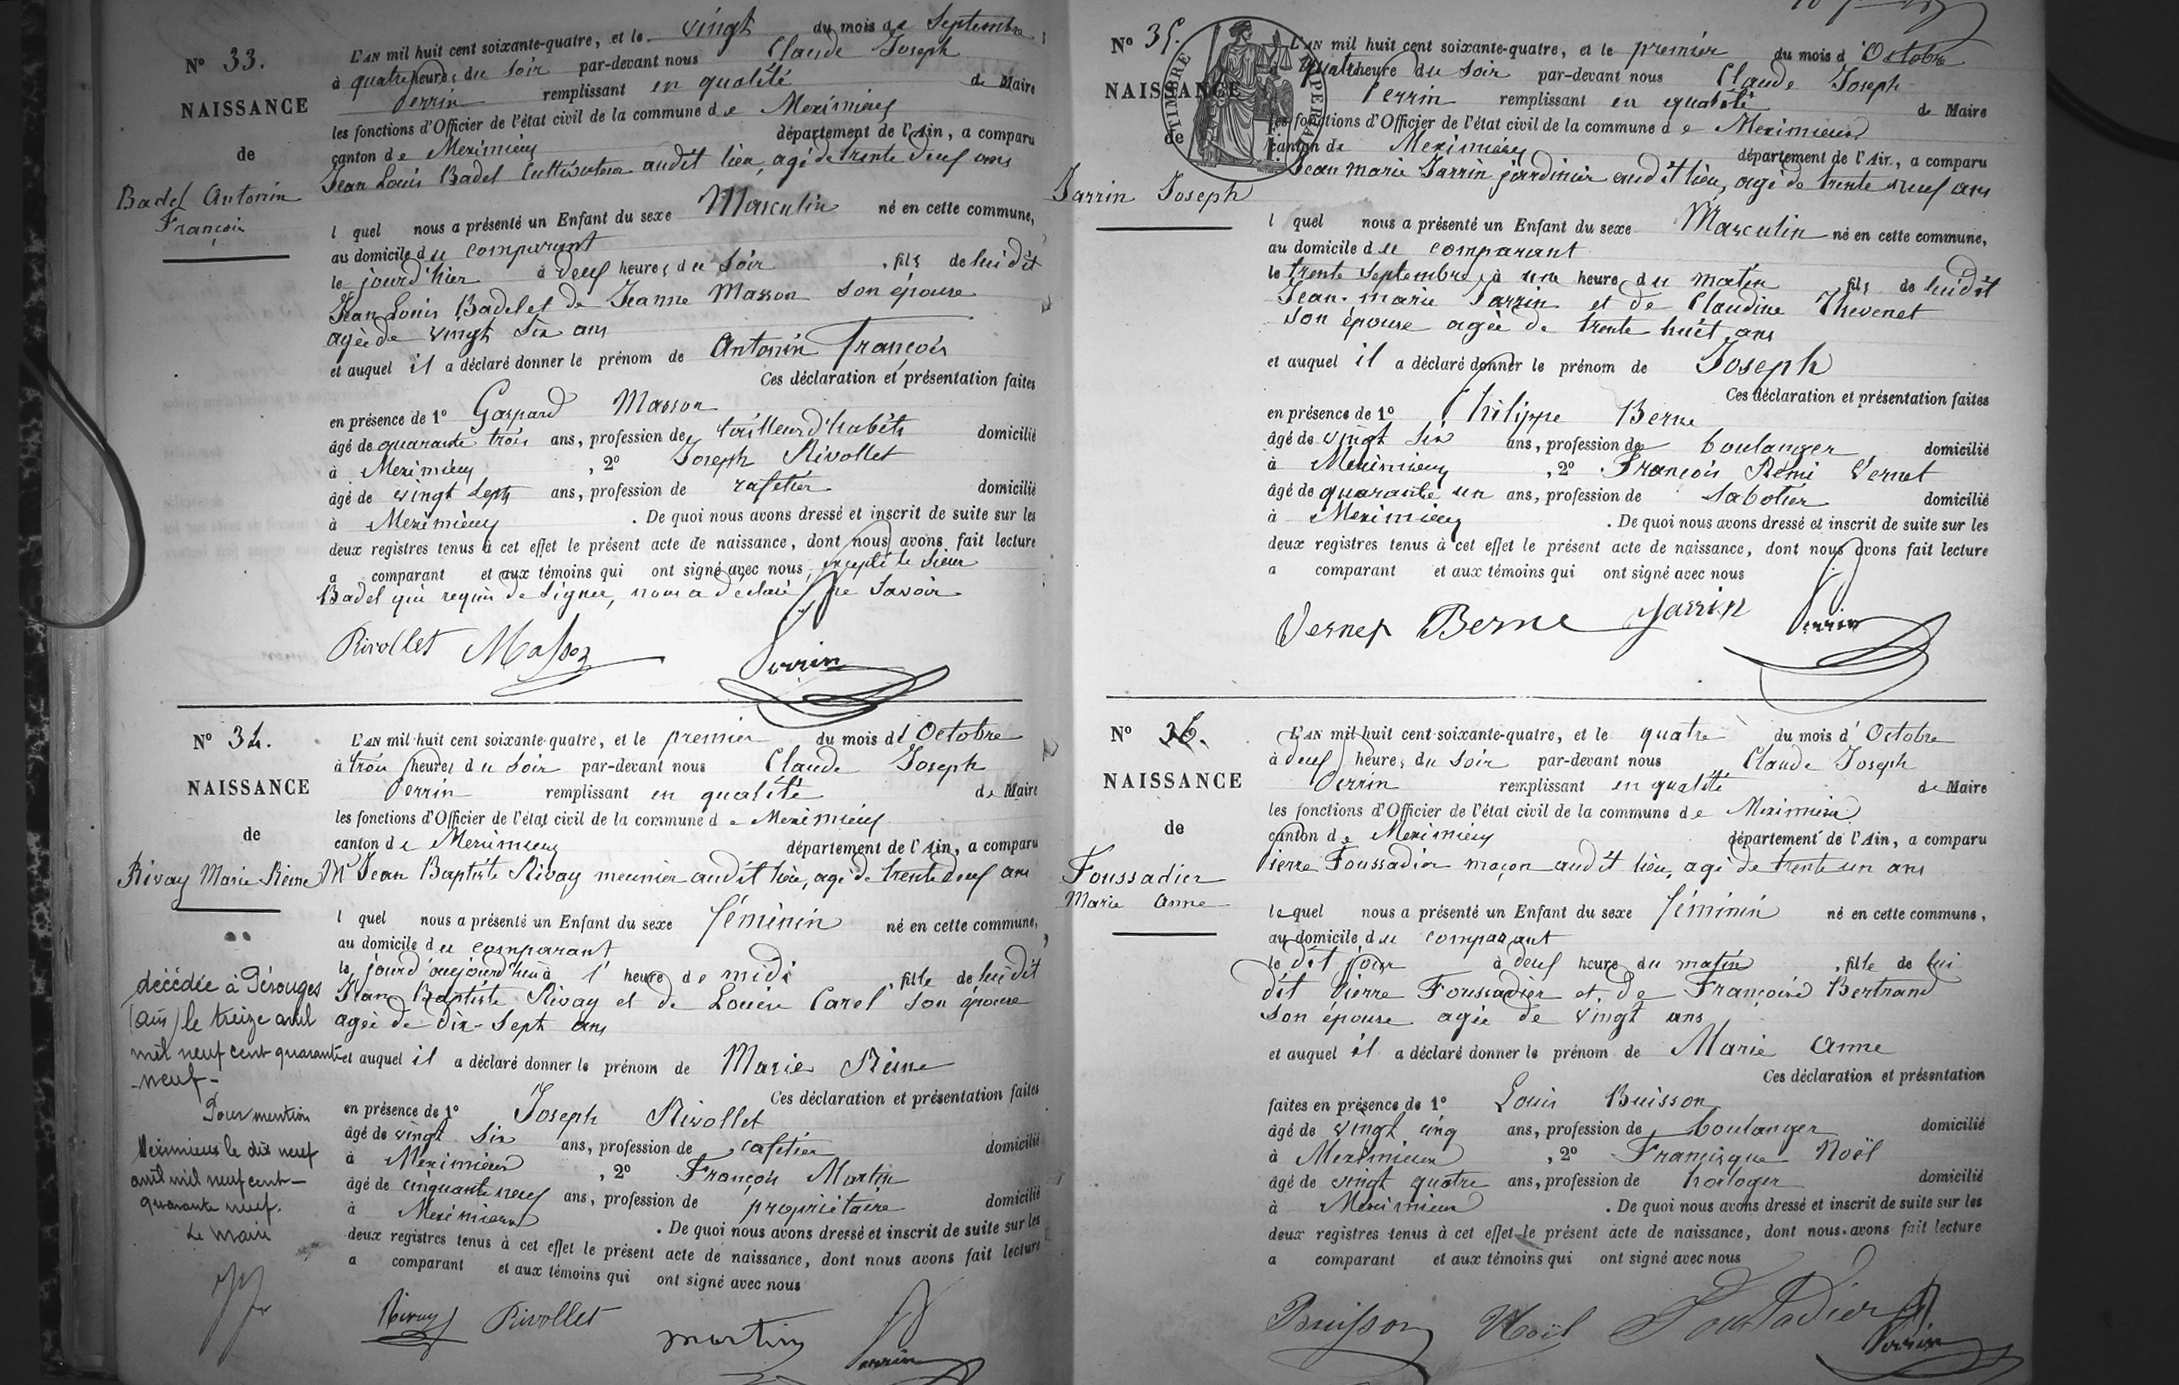 N° 33.
NAISSANCE
de
Badel Antonin
François
L'AN mil huit cent soixante-quatre, et le vingt du mois de Septembre
à quatre heures du soir par-devant nous Claude Joseph
Perrin remplissant en qualité de Maire
les fonctions d'Officier de l'état civil de la commune de Meximieux
canton de Meximieux département de l'Ain, a comparu
Jean Louis Badel Cultivateur audit lieu, agé de trente deux ans
l quel nous a présenté un Enfant du sexe Masculin né en cette commune,
au domicile du comparant
le jourd'hier à deux heures du soir , fils de lui dit
Jean Louis Badel et de Jeanne Masson son épouse
agée de vingt six ans
et auquel il a déclaré donner le prénom de Antonin François
Ces déclaration et présentation faites
en présence de 1° Gaspard Masson
âgé de quarante trois ans, profession de tailleur d'habits domicilié
à Meximieux , 2° Joseph Rivollet
âgé de vingt sept ans, profession de cafetier domicilié
à Meximieux . De quoi nous avons dressé et inscrit de suite sur les
deux registres tenus à cet effet le présent acte de naissance, dont nous avons fait lecture
a comparant et aux témoins qui ont signé avec nous, excepté le sieur
Badel qui requis de signer, nous a déclaré ne savoir
Rivollet Masson Perrin
N° 34.
NAISSANCE
de
Rivay Marie Reine
décédée à Pérouges
(ain) le treize avril
mil neuf cent quarante
-neuf-
Pour mention
Meximieux le dix neuf
avril mil neuf cent-
quarante neuf.
Le Maire
L'AN mil huit cent soixante-quatre, et le premier du mois d'Octobre
à trois heures du soir par-devant nous Claude Joseph
Perrin remplissant en qualité de Maire
les fonctions d'Officier de l'état civil de la commune de Meximieux
canton de Meximieux département de l'Ain, a comparu
Mr Jean Baptiste Rivay meunier audit lieu, agé de trente deux ans
l quel nous a présenté un Enfant du sexe féminin né en cette commune,
au domicile du comparant
le jourd'aujourd'hui à l' heure de midi , fille de lui dit
Jean Baptiste Rivay et de Louise Carel son épouse
agée de dix-sept ans
et auquel il a déclaré donner le prénom de Marie Reine
Ces déclaration et présentation faites
en présence de 1° Joseph Rivollet
âgé de vingt six ans, profession de cafetier domicilié
à Meximieux , 2° François Martin
âgé de cinquante neuf ans, profession de propriétaire domicilié
à Meximieux . De quoi nous avons dressé et inscrit de suite sur les
deux registres tenus à cet effet le présent acte de naissance, dont nous avons fait lecture
a comparant et aux témoins qui ont signé avec nous
Rivay Rivollet martin Perrin
N° 35.
NAISSANCE
de
Jarrin Joseph
TIMBRE IMPERIAL
L'AN mil huit cent soixante-quatre, et le premier du mois d'Octobre
à quatre heure du soir par-devant nous Claude Joseph
Perrin remplissant en qualité de Maire
les fonctions d'Officier de l'état civil de la commune de Meximieux
canton de Meximieux département de l'Ain, a comparu
Jean marie Jarrin jardinier audit lieu, agé de trente neuf ans
l quel nous a présenté un Enfant du sexe Masculin né en cette commune,
au domicile du comparant
le trente septembre à une heure du matin fils de lui dit
Jean-marie Jarrin et de Claudine Thevenet
son épouse agée de trente huit ans
et auquel il a déclaré donner le prénom de Joseph
Ces déclaration et présentation faites
en présence de 1° Philippe Berne
âgé de vingt six ans, profession de boulanger domicilié
à Meximieux , 2° François Rémi Vernet
âgé de quarante un ans, profession de sabotier domicilié
à Meximieux . De quoi nous avons dressé et inscrit de suite sur les
deux registres tenus à cet effet le présent acte de naissance, dont nous avons fait lecture
a comparant et aux témoins qui ont signé avec nous
Vernet Berne Jarrin Perrin
N° 36.
NAISSANCE
de
Foussadier
Marie Anne
L'AN mil huit cent soixante-quatre, et le quatre du mois d'Octobre
à deux heures du soir par-devant nous Claude Joseph
Perrin remplissant en qualité de Maire
les fonctions d'Officier de l'état civil de la commune de Meximieux
canton de Meximieux département de l'Ain, a comparu
Pierre Foussadier maçon audit lieu, agé de trente un ans
lequel nous a présenté un Enfant du sexe féminin né en cette commune,
au domicile du comparant
le dit jour à deux heure du matin , fille de lui
dit Pierre Foussadier et de Françoise Bertrand
son épouse agée de vingt ans
et auquel il a déclaré donner le prénom de Marie Anne
Ces déclaration et présentation
faites en présence de 1° Louis Buisson
âgé de vingt cinq ans, profession de boulanger domicilié
à Meximieux , 2° Francisque Noël
âgé de vingt quatre ans, profession de horloger domicilié
à Meximieux . De quoi nous avons dressé et inscrit de suite sur les
deux registres tenus à cet effet le présent acte de naissance, dont nous avons fait lecture
a comparant et aux témoins qui ont signé avec nous
Buisson Noël Foussadier Perrin